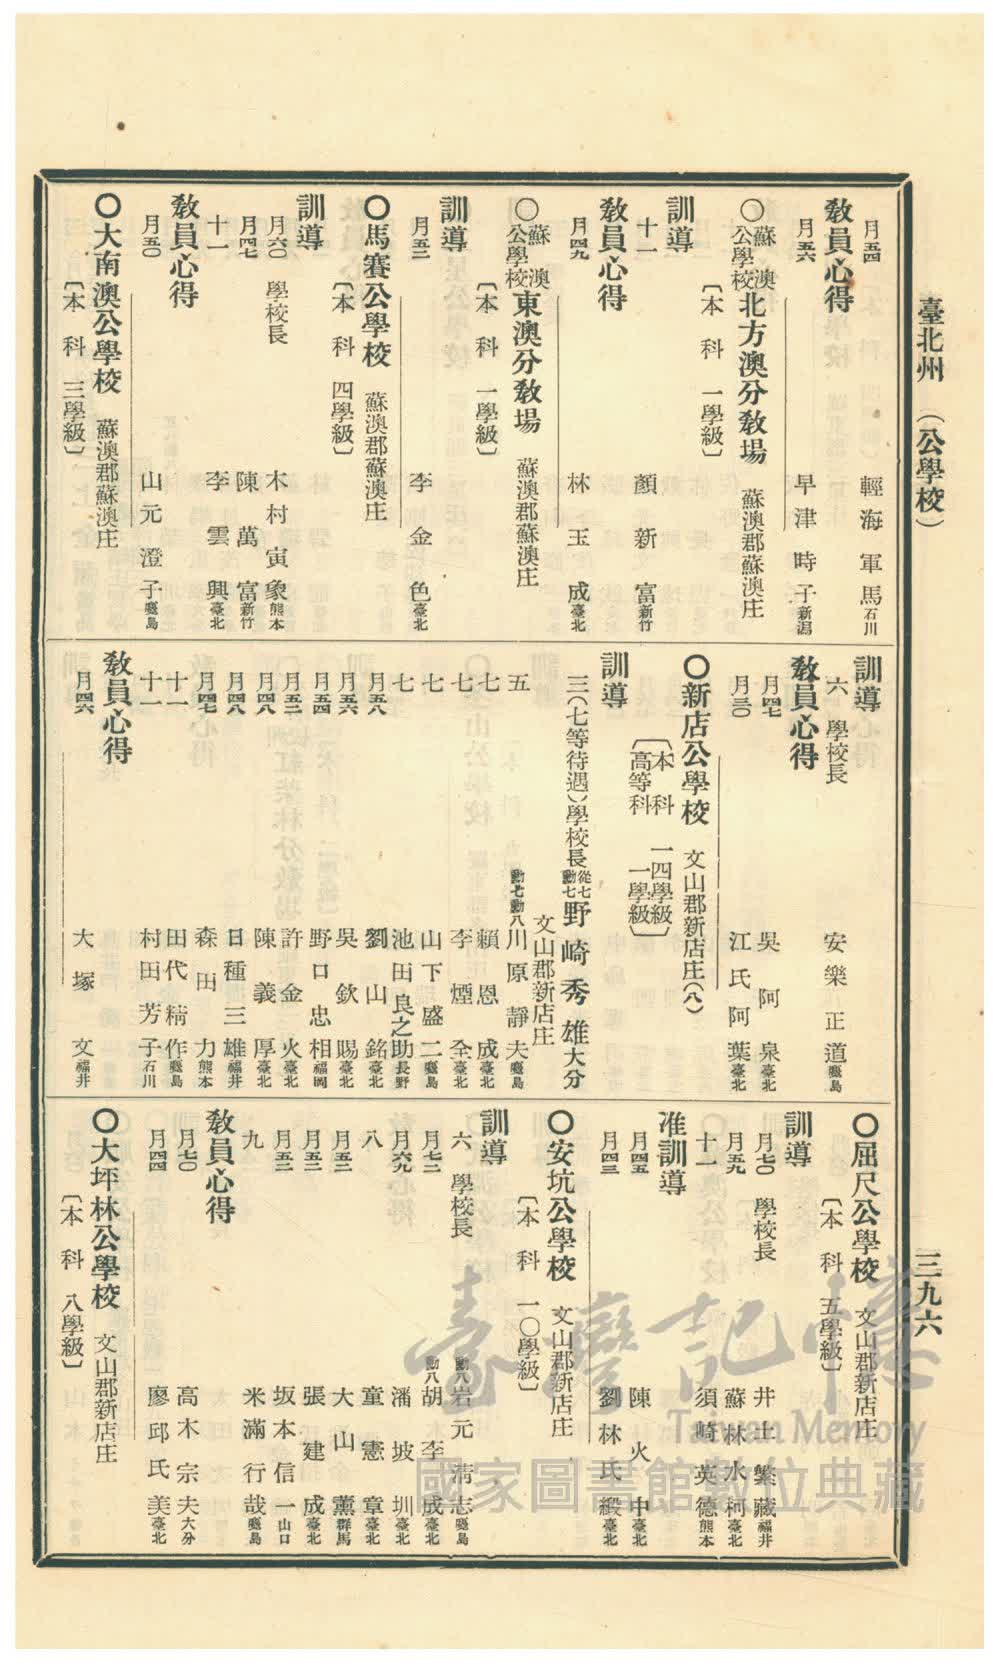 臺北州 （公學校）
三九六
月五四 輕海軍馬 石川
教員心得
月五六 早津時子 新潟
〇蘇澳公學校北方澳分教場 蘇澳郡蘇澳庄
〔本科 一學級〕
訓導
十一 顏新富 新竹
教員心得
月四九 林玉成 臺北
〇蘇澳公學校東澳分教場 蘇澳郡蘇澳庄
〔本科 一學級〕
訓導
月五三 李金色 臺北
〇馬賽公學校 蘇澳郡蘇澳庄
〔本科 四學級〕
訓導
月六〇 學校長 木村寅象 熊本
月四七 陳萬富 新竹
十一 李雲興 臺北
教員心得
月五〇 山元澄子 鹿兒島
〇大南澳公學校 蘇澳郡蘇澳庄
〔本科 三學級〕
訓導
六 學校長 安樂正道 鹿兒島
教員心得
月四七 吳阿泉 臺北
月三〇 江氏阿葉 臺北
〇新店公學校 文山郡新店庄（八）
〔本科 一四學級
高等科 一學級〕
訓導
三（七等待遇）學校長 從七勳七 野崎秀雄 大分
文山郡新店庄
五 勳七勳八 川原靜夫 鹿兒島
七 賴恩成 臺北
七 李煙全 臺北
七 山下盛二 鹿兒島
七 池田良之助 長野
月五八 劉山銘 臺北
月五六 吳欽賜 臺北
月五四 野口忠相 福岡
月五三 許金火 臺北
月四八 陳義厚 臺北
月四八 日種三雄 福井
月四七 森田力 熊本
十一 田代精作 鹿兒島
十一 村田芳子 石川
教員心得
月四六 大塚文 福井
〇屈尺公學校 文山郡新店庄
〔本科 五學級〕
訓導
月七〇 學校長 井上繁藏 福井
月五九 蘇林水柯 臺北
十一 須崎英德 熊本
准訓導
月四五 陳火中 臺北
月四三 劉林氏緞 臺北
〇安坑公學校 文山郡新店庄
〔本科 一〇學級〕
訓導
六 學校長 勳八 岩元淸志 鹿兒島
月七二 勳八 胡李成 臺北
月六九 潘坡圳 臺北
八 童憲章 臺北
月五三 大山薰 群馬
月五三 張建成 臺北
月五三 坂本信一 山口
九 米滿行哉 鹿兒島
教員心得
月七〇 高木宗夫 大分
月四四 廖邱氏美 臺北
〇大坪林公學校 文山郡新店庄
〔本科 八學級〕
臺灣記憶
Taiwan Memory
國家圖書館數位典藏